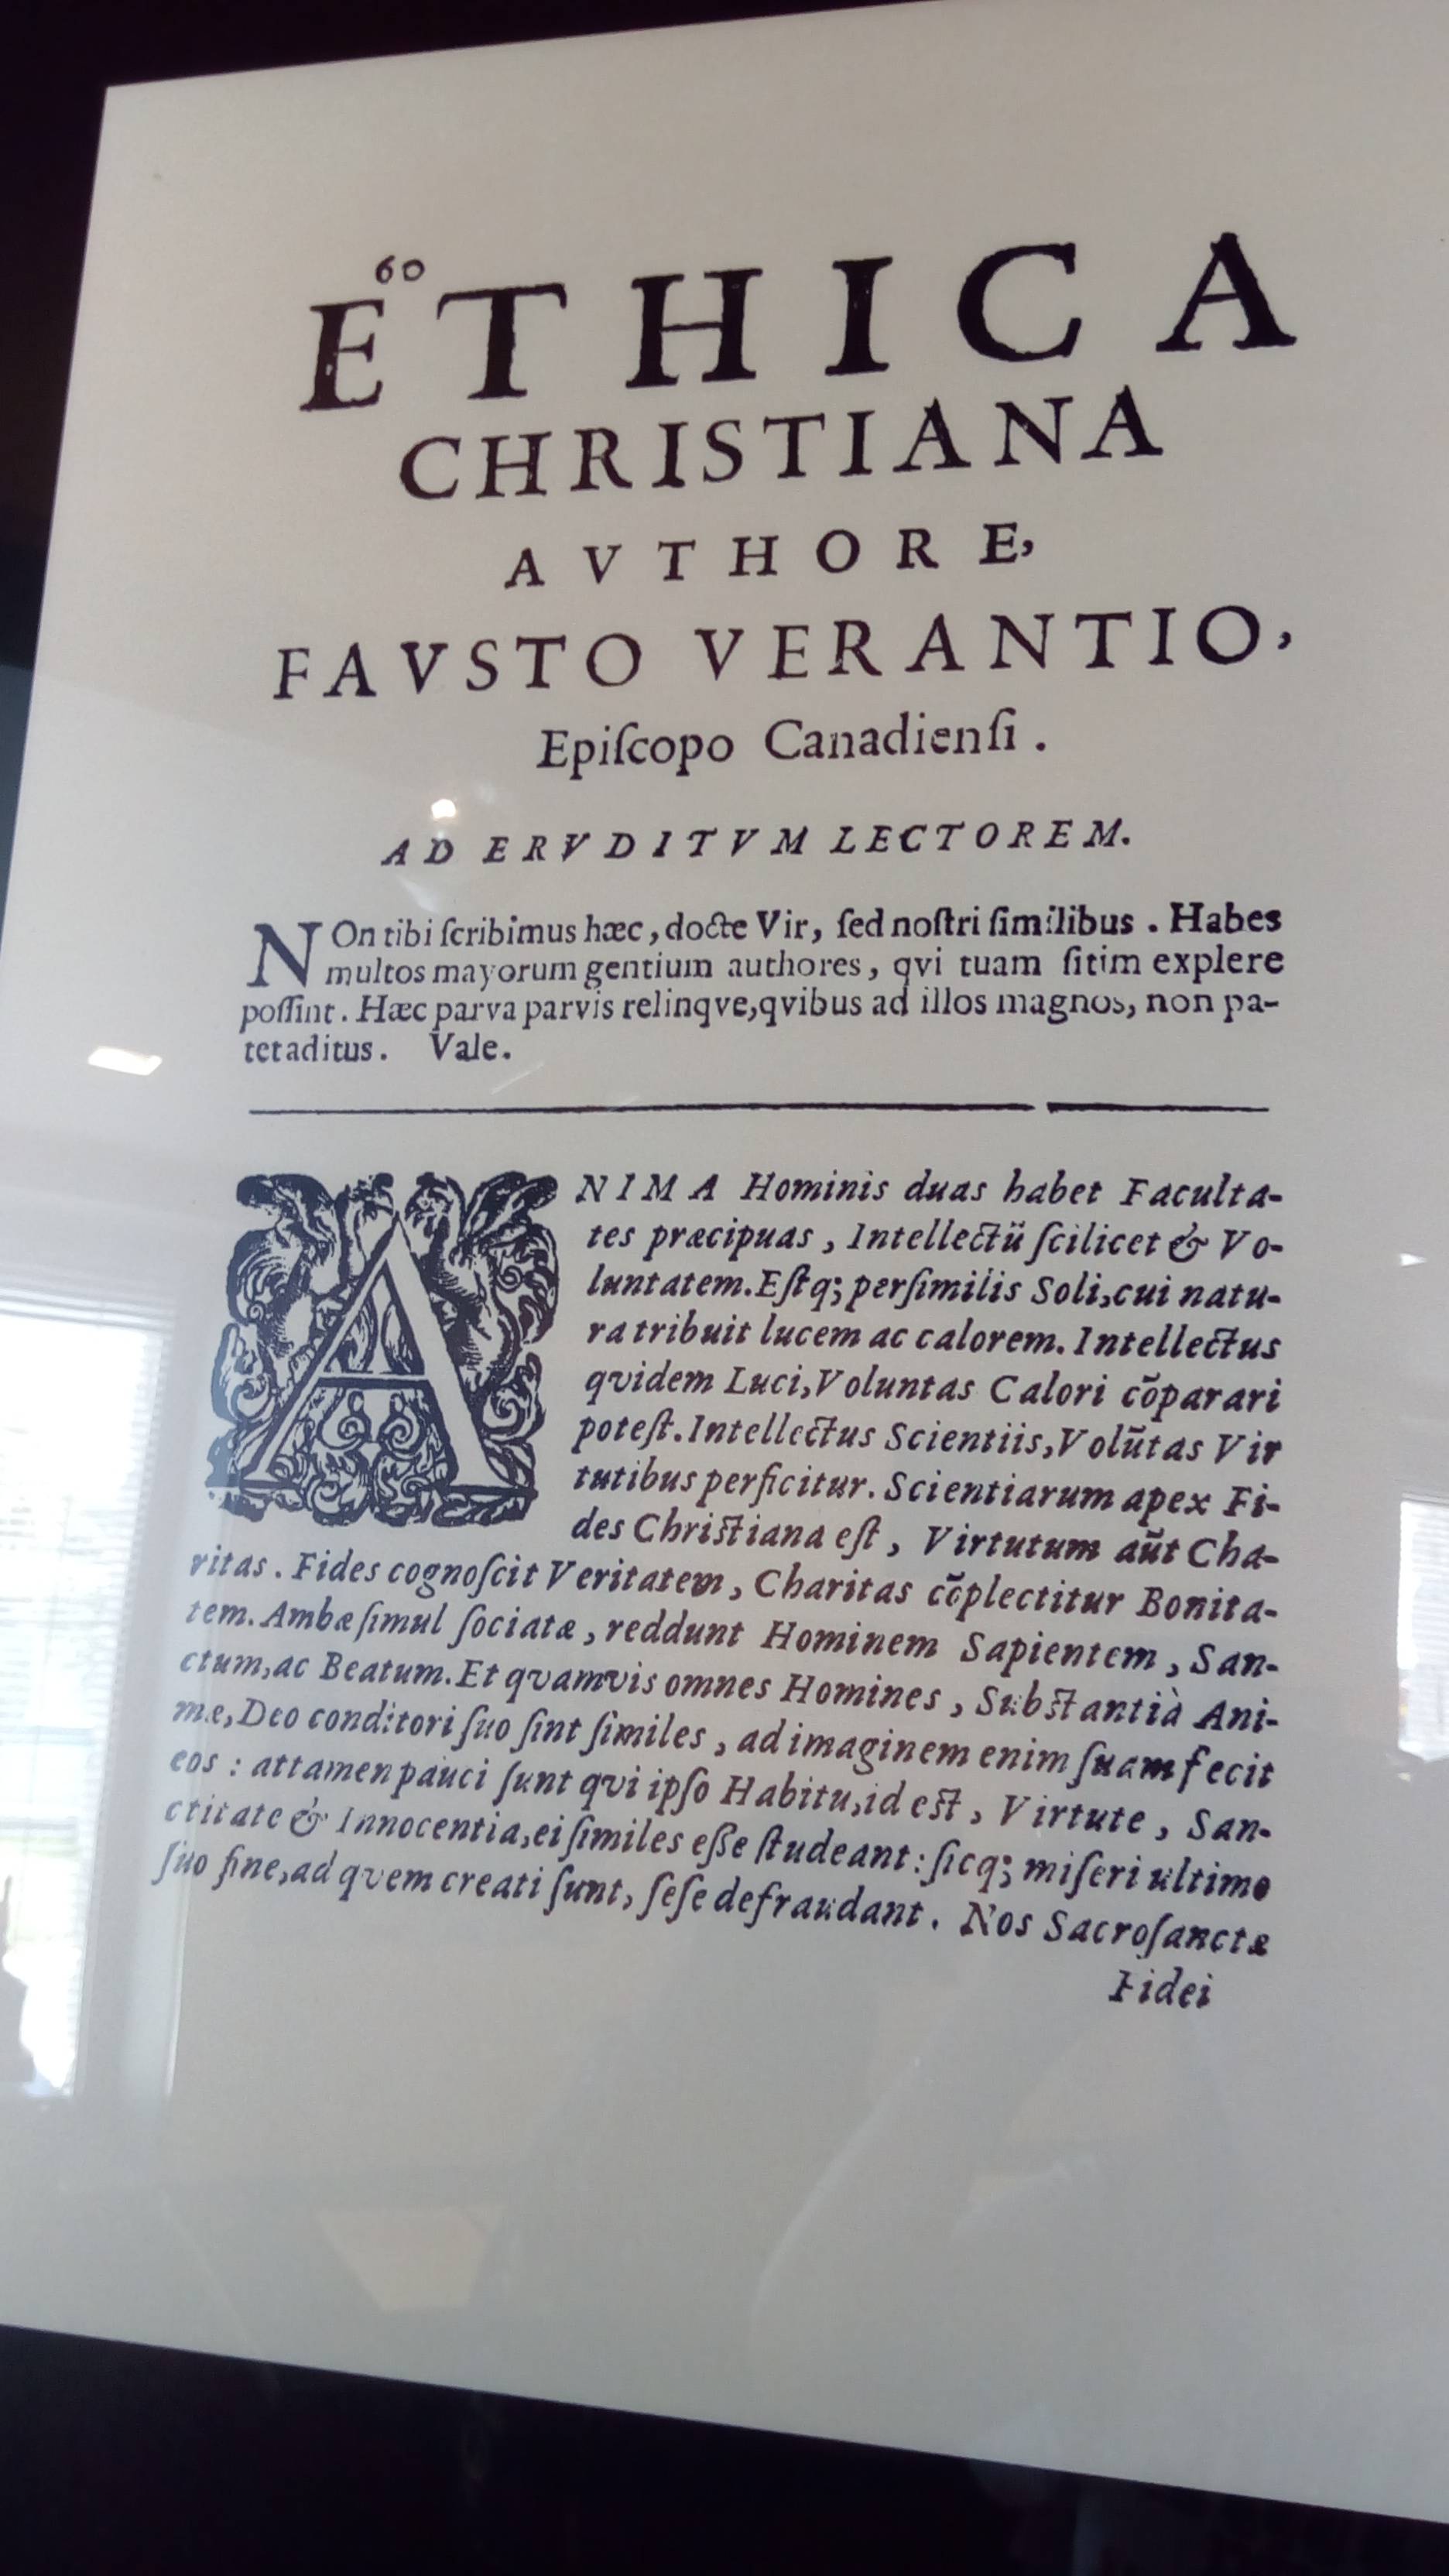 60
ETHICA
CHRISTIANA
AVTHORE,
FAVSTO VERANTIO,
Epiſcopo Canadienſi.
AD ERVDITVM LECTOREM.
NOn tibi ſcribimus hæc, docte Vir, ſed noſtri ſimilibus. Habes
multos mayorum gentium authores, qvi tuam ſitim explere
poſſint. Hæc parva parvis relinqve, qvibus ad illos magnos, non pa-
tet aditus. Vale.
ANIMA Hominis duas habet Faculta-
tes præcipuas, Intellectũ ſcilicet & Vo-
luntatem. Eſtq; perſimilis Soli, cui natu-
ra tribuit lucem ac calorem. Intellectus
qvidem Luci, Voluntas Calori cõparari
poteſt. Intellectus Scientiis, Volũtas Vir
tutibus perficitur. Scientiarum apex Fi-
des Chriſtiana eſt, Virtutum aũt Cha-
ritas. Fides cognoſcit Veritatem, Charitas cõplectitur Bonita-
tem. Ambæ ſimul ſociatæ, reddunt Hominem Sapientem, San-
ctum, ac Beatum. Et qvamvis omnes Homines, Subſtantià Ani-
mæ, Deo conditori ſuo ſint ſimiles, ad imaginem enim ſuam fecit
eos: attamen pauci ſunt qvi ipſo Habitu, id eſt, Virtute, San-
ctitate & Innocentia, ei ſimiles eſſe ſtudeant: ſicq; miſeri ultimo
ſuo fine, ad qvem creati ſunt, ſeſe defraudant. Nos Sacroſanctæ
Fidei